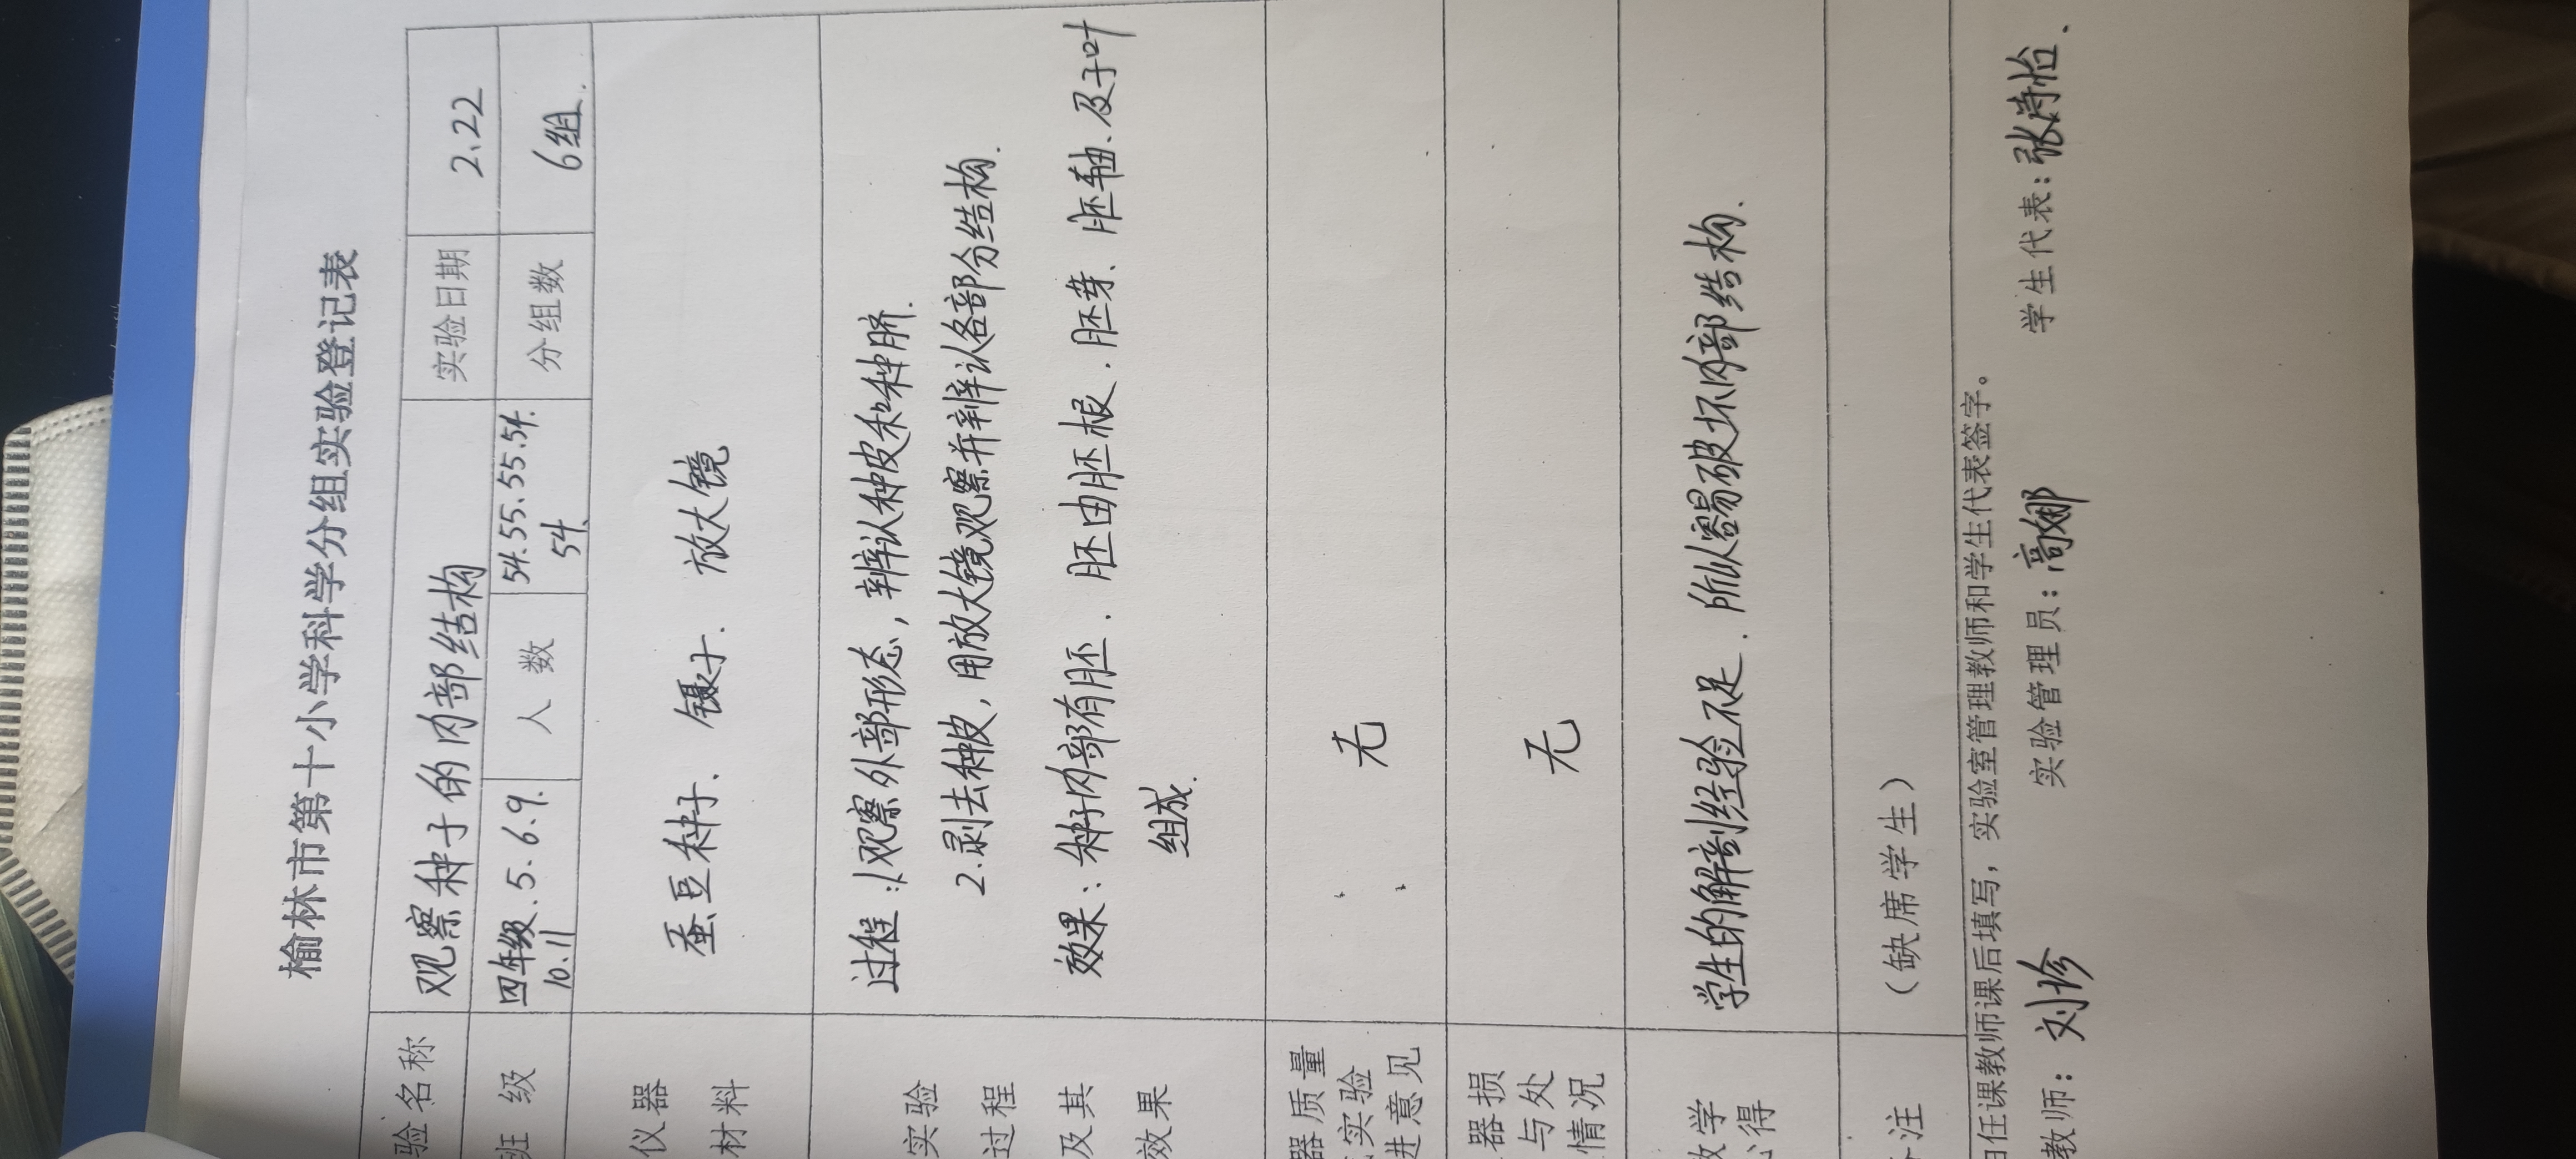 榆林市第十小学科学分组实验登记表
验名称 观察种子的内部结构 实验日期 2.22
班 级 四年级.5.6.9. 人 数 54.55.55.54. 分组数 6组.
10.11 54.
仪器 蚕豆种子. 镊子. 放大镜
材料
过程:1.观察外部形态,辨认种皮和种脐.
实验 2.剥去种皮,用放大镜观察并辨认各部分结构.
过程
及其 效果:种子内部有胚. 胚由胚根.胚芽、胚轴、及子叶
效果 组成.
器质量
实验 无
进意见
器损
与处 无
情况
教学 学生的解剖经验不足.所以容易破坏内部结构.
心得
注 (缺席学生)
由任课教师课后填写,实验室管理教师和学生代表签字。
教师:刘珍 实验管理员:高娜 学生代表:张诗怡.